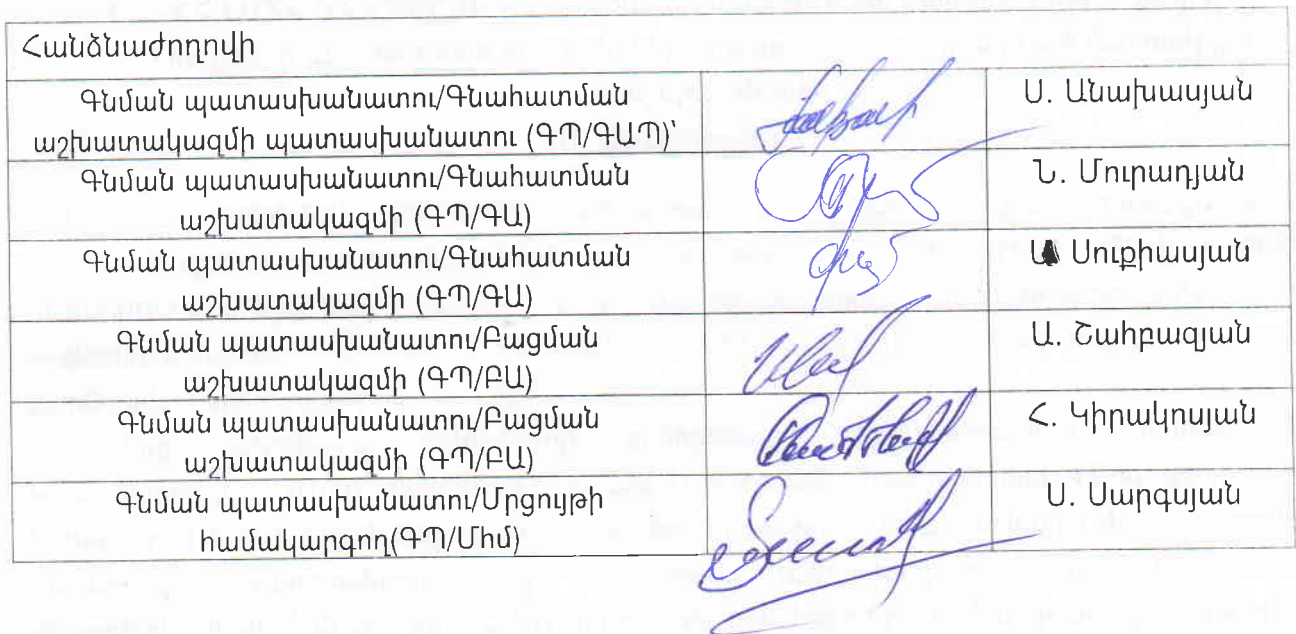 Հանձնաժողովի
Գնման պատասխանատու/Գնահատման
աշխատակազմի պատասխանատու (ԳՊ/ԳԱՊ)՝
Ս. Անախասյան
Գնման պատասխանատու/Գնահատման
աշխատակազմի (ԳՊ/ԳԱ)
Ն. Մուրադյան
Գնման պատասխանատու/Գնահատման
աշխատակազմի (ԳՊ/ԳԱ)
Սուքիասյան
Գնման պատասխանատու/Բացման
աշխատակազմի (ԳՊ/ԲԱ)
Ա. Շահբազյան
Գնման պատասխանատու/Բացման
աշխատակազմի (ԳՊ/ԲԱ)
Հ. Կիրակոսյան
Գնման պատասխանատու/Մրցույթի
համակարգող(ԳՊ/Մհմ)
Ս. Սարգսյան